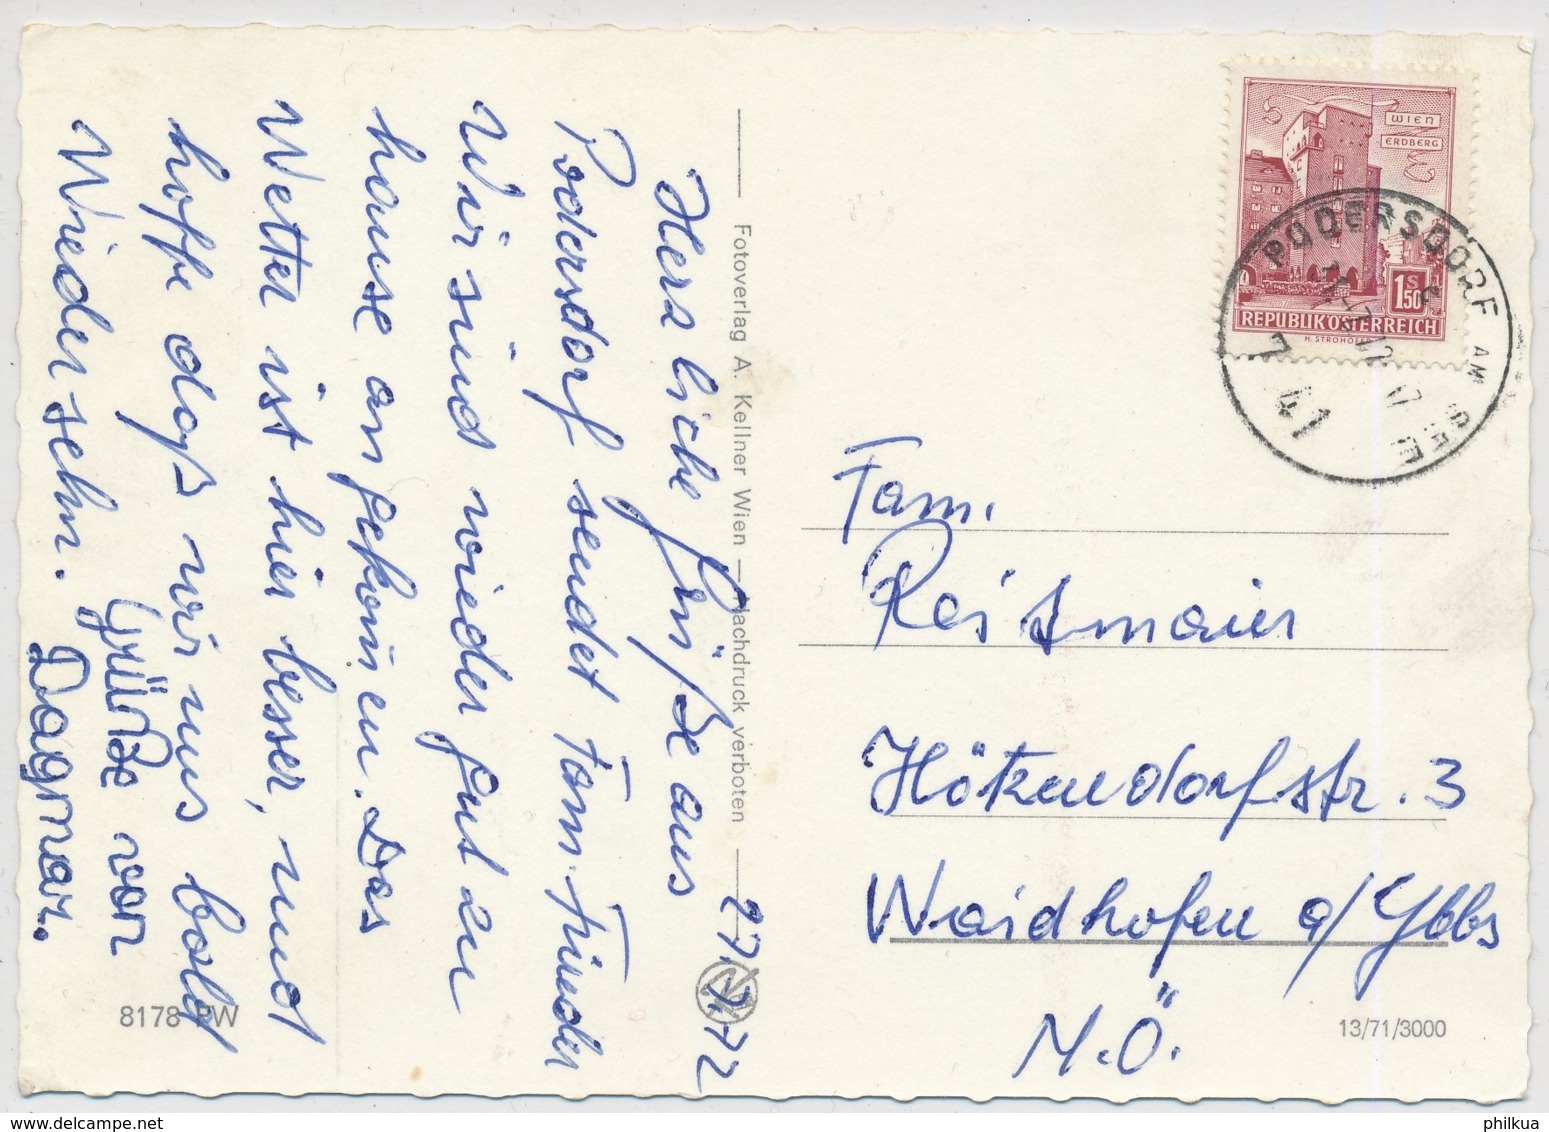 27.7.72
Herzliche Grüße aus
Podersdorf sendet Fam.
Wir sind wieder gut zu
hause angekommen. Das
Wetter ist hier besser, und
hoffe daß wir uns bald
Wiedersehn.
Grüße von
Dagmar.
Fotoverlag A. Kellner Wien — Nachdruck verboten
8178 PW
WIEN
ERDBERG
1.50 S
REPUBLIK ÖSTERREICH
H. STROHOFER
PODERSDORF AM SEE
7141
Fam.
Reismaier
Hötzendorfstr. 3
Waidhofen a/Ybbs
N.Ö.
13/71/3000
delcampe.net
philkua